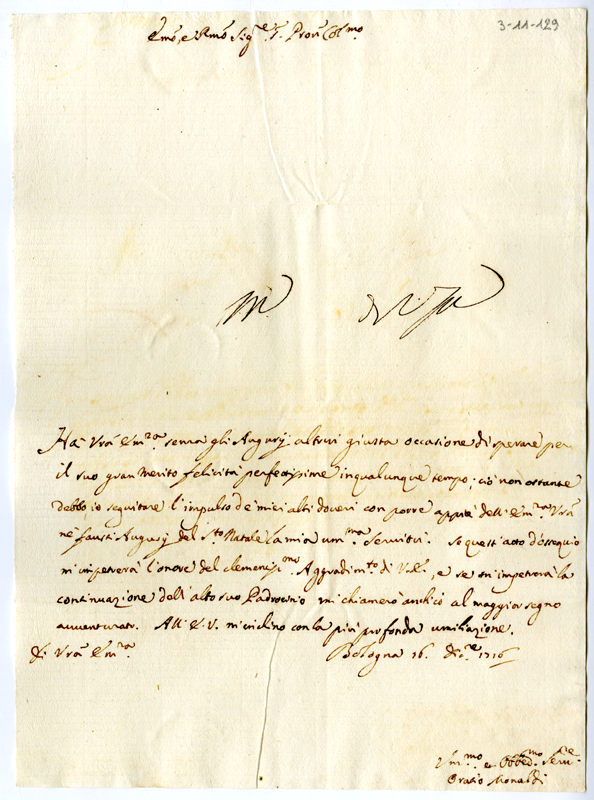 3-11-129
Emo, e Rmo Sig.re Pron Colmo
Ha Vrâ Em.za senza gli Augurij altrui giusta occasione di sperare per
il suo gran Merito felicità perfettissime in qualunque tempo; ciò non ostante
debbo io seguitare l'impulso de miei alti doveri con porre appiè dell'Em.za Vrâ
ne fausti Augurij del S.to Natale la mia um.ma Servitù. Se quest'atto d'ossequio
m'impetrerà l'onore del clementiss.mo Aggradim.to di V.E., e se m'impetrerà la
continuazione dell'alto suo Padrocinio mi chiamerò anche al maggior segno
avventurato. All'E.V. m'inchino con la più profonda umiliazione.
Di Vrâ Em.za
Bologna 16. Dec.re 1716
Um.mo e Obbed.mo Serv.re
Oratio Monaldi